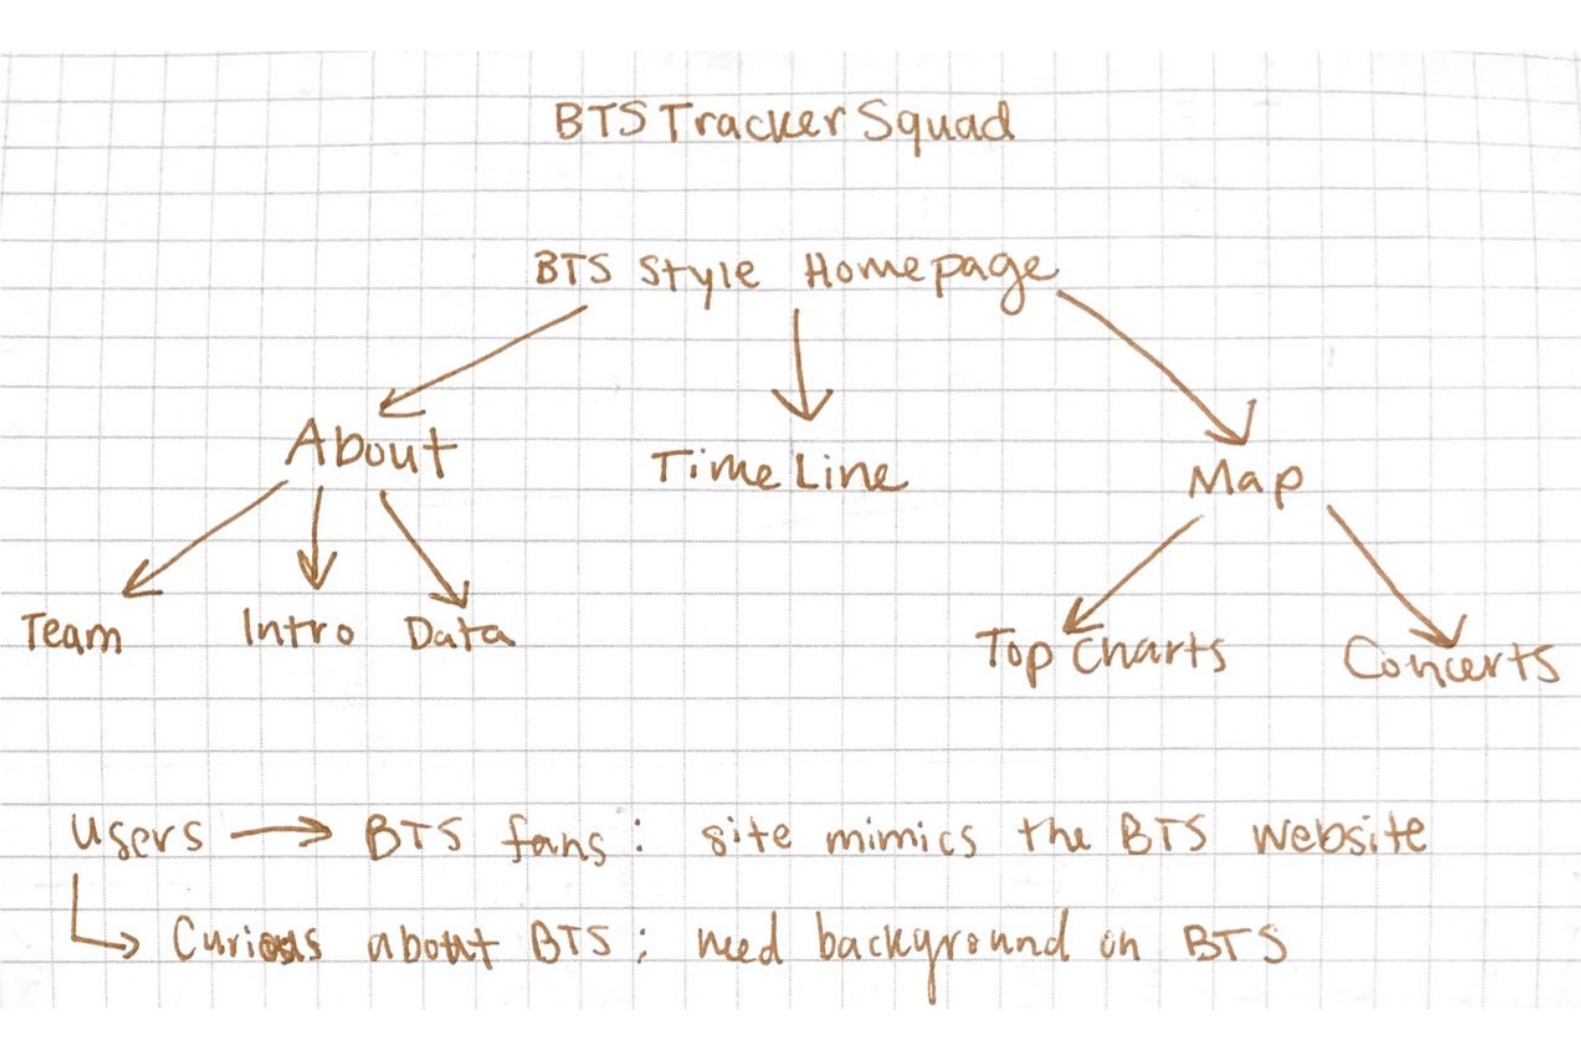 BTS Tracker Squad
BTS Style Homepage
About
Time Line
Map
Team
Intro
Data
Top Charts
Concerts
users → BTS fans: site mimics the BTS website
↳ Curious about BTS; need background on BTS